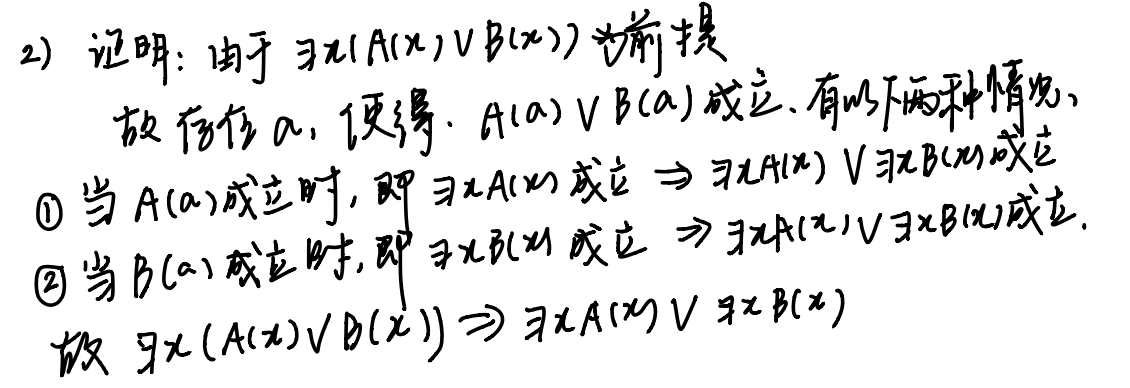 2) 证明：由于 ∃x(A(x)∨B(x)) 为前提
故存在 a, 使得. A(a)∨B(a) 成立. 有以下两种情况、
① 当 A(a) 成立时, 即 ∃xA(x) 成立 ⇒ ∃xA(x) ∨ ∃xB(x) 成立
② 当 B(a) 成立时, 即 ∃xB(x) 成立 ⇒ ∃xA(x) ∨ ∃xB(x) 成立.
故 ∃x(A(x)∨B(x)) ⇒ ∃xA(x) ∨ ∃xB(x)